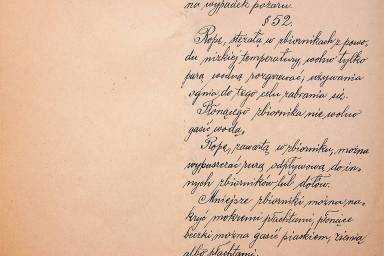 na wypadek pożaru.
§ 52.
Ropę, stężałą w zbiornikach z powo-
du nizkiej temperatury, wolno tylko
parą wodną rozgrzewać; używania
ognia do tego celu zabrania się.
Płonącego zbiornika nie wolno
gasić wodą.
Ropę, zawartą w zbiorniku, można
wypuszczać rurą odpływową do in-
nych zbiorników lub dołów.
Mniejsze zbiorniki można na-
kryć mokremi płachtami, płonące
beczki można gasić piaskiem, ziemią
albo płachtami.